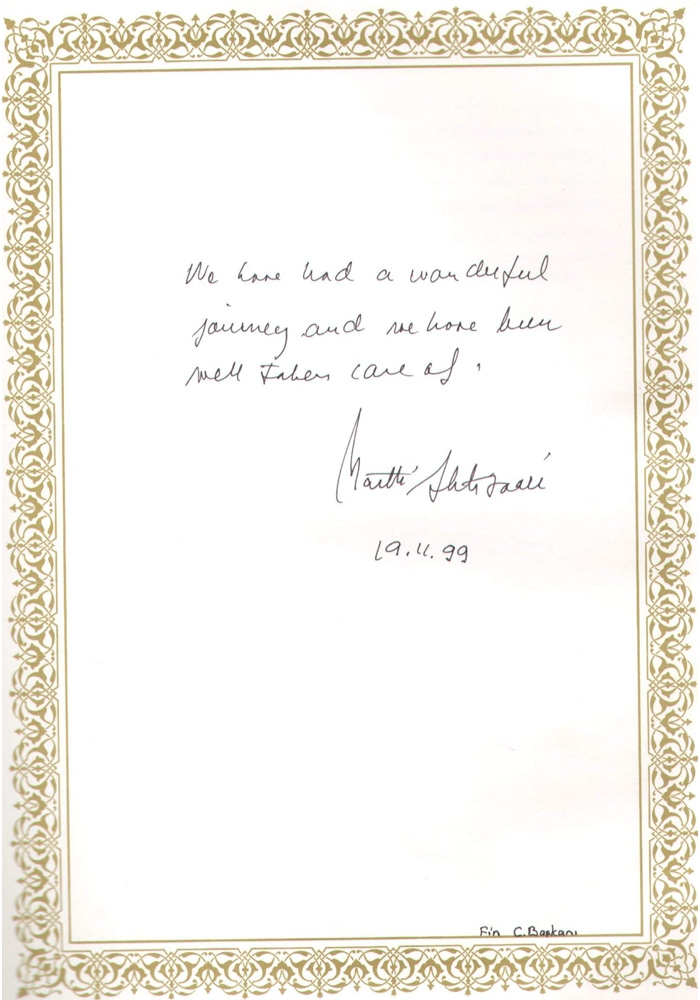 We have had a wonderful
journey and we have been
well taken care of.
Martti Ahtisaari
19.11.99
Fin C.Başkanı